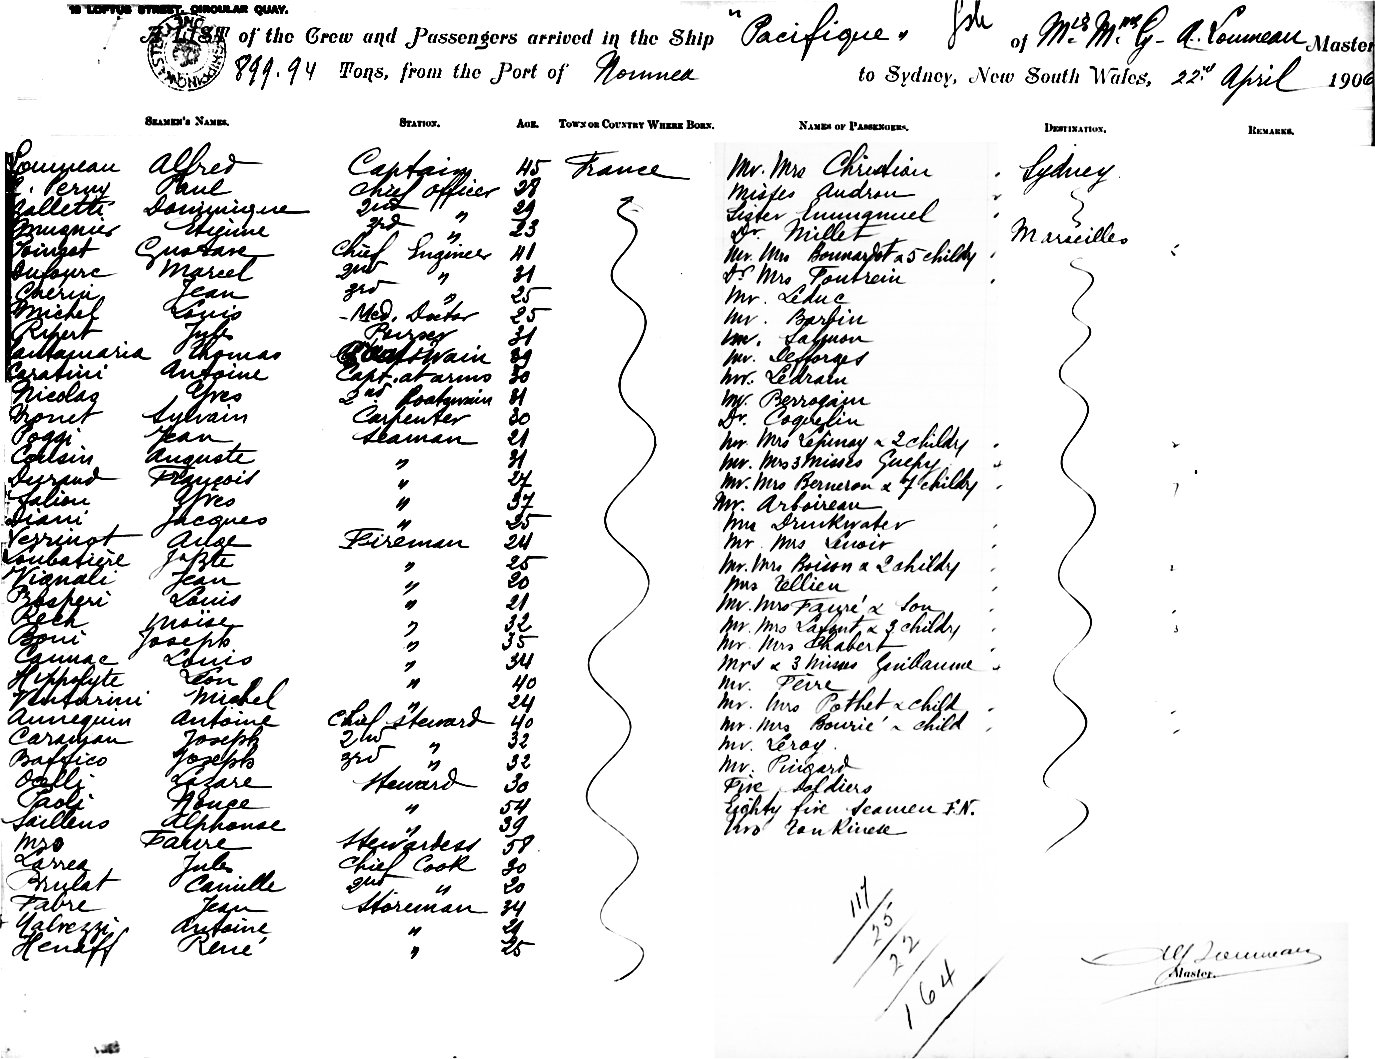 16 LOFTUS STREET, CIRCULAR QUAY.
A LIST of the Crew and Passengers arrived in the Ship "Pacifique" of A. Loumeau Master
899.94 Tons, from the Port of Noumea to Sydney, New South Wales, 22nd April 1906
SEAMEN'S NAMES. STATION. AGE. TOWN OR COUNTRY WHERE BORN. NAMES OF PASSENGERS. DESTINATION. REMARKS.
Loumeau Alfred Captain 45 France Mr. Mrs Christian Sydney
Paul Chief Officer 28 Misses Audron
Galletti Dominique 2nd " 29 Sister Emmanuel
Mugnier Etienne 3rd " 23 Dr. Millet Marseilles
Gustave Chief Engineer 41 Mr. Mrs Bonnardot & 5 childn
Dufourc Marcel 2nd " 31 Dr Mrs Fontrein
Guerin Jean 3rd " 25 Mr. Leduc
Michel Louis Med. Doctor 25 Mr. Barbin
Ripert Jules Purser 31 Mr. Salmon
Santamaria Thomas Boatswain 39 Mr. Defforges
Caratini Antoine Capt. at arms 30 Mr. Ledrain
Nicolas Yves 2nd Boatswain 31 Mr. Berrogain
Monet Sylvain Carpenter 30 Dr. Coquelin
Poggi Jean Seaman 21 Mr Mrs Lepinay & 2 childn
Cousin Auguste " 31 Mr. Mrs 3 Misses Guepy
Durand François " 27 Mr. Mrs Berneron & 7 childn
Saliou Yves " 37 Mr. Arboireau
Diani Jacques " 25 Mrs Drinkwater
Verrinot Ange Fireman 24 Mr. Mrs Lenoir
Loubatière " 25 Mr. Mrs Boison & 2 childn
Vignali Jean " 20 Mrs Tellien
Bosperi Louis " 21 Mr. Mrs Fauré & Son
Rech Moïse " 32 Mr. Mrs Lafont & 3 childn
Boni Joseph " 35 Mr. Mrs Chabert
Caunac Louis " 34 Mrs & 3 Misses Guillaume
Hippolyte Léon " 40 Mr. Ferre
Venturini Michel " 24 Mr. Mrs Pothet & child
Annequin Antoine Chief Steward 40 Mr. Mrs Bourié & child
Caraman Joseph 2nd " 32 Mr. Leroy
Baffico Joseph 3rd " 32 Mr. Pingard
Ocelli Lazare Steward 30 Five Soldiers
Paoli Nonce " 54 Eighty five Seamen F.N.
Saillens Alphonse " 39 Two Tonkinese
Mrs Faure Stewardess 58
Larrea Jules Chief Cook 30
Brulat Camille 2nd " 20
Fabre Jean Storeman 34
Malvezzi Antoine " 21
Henaff René " 25
117
25
22
164
Alf Loumeau
Master.